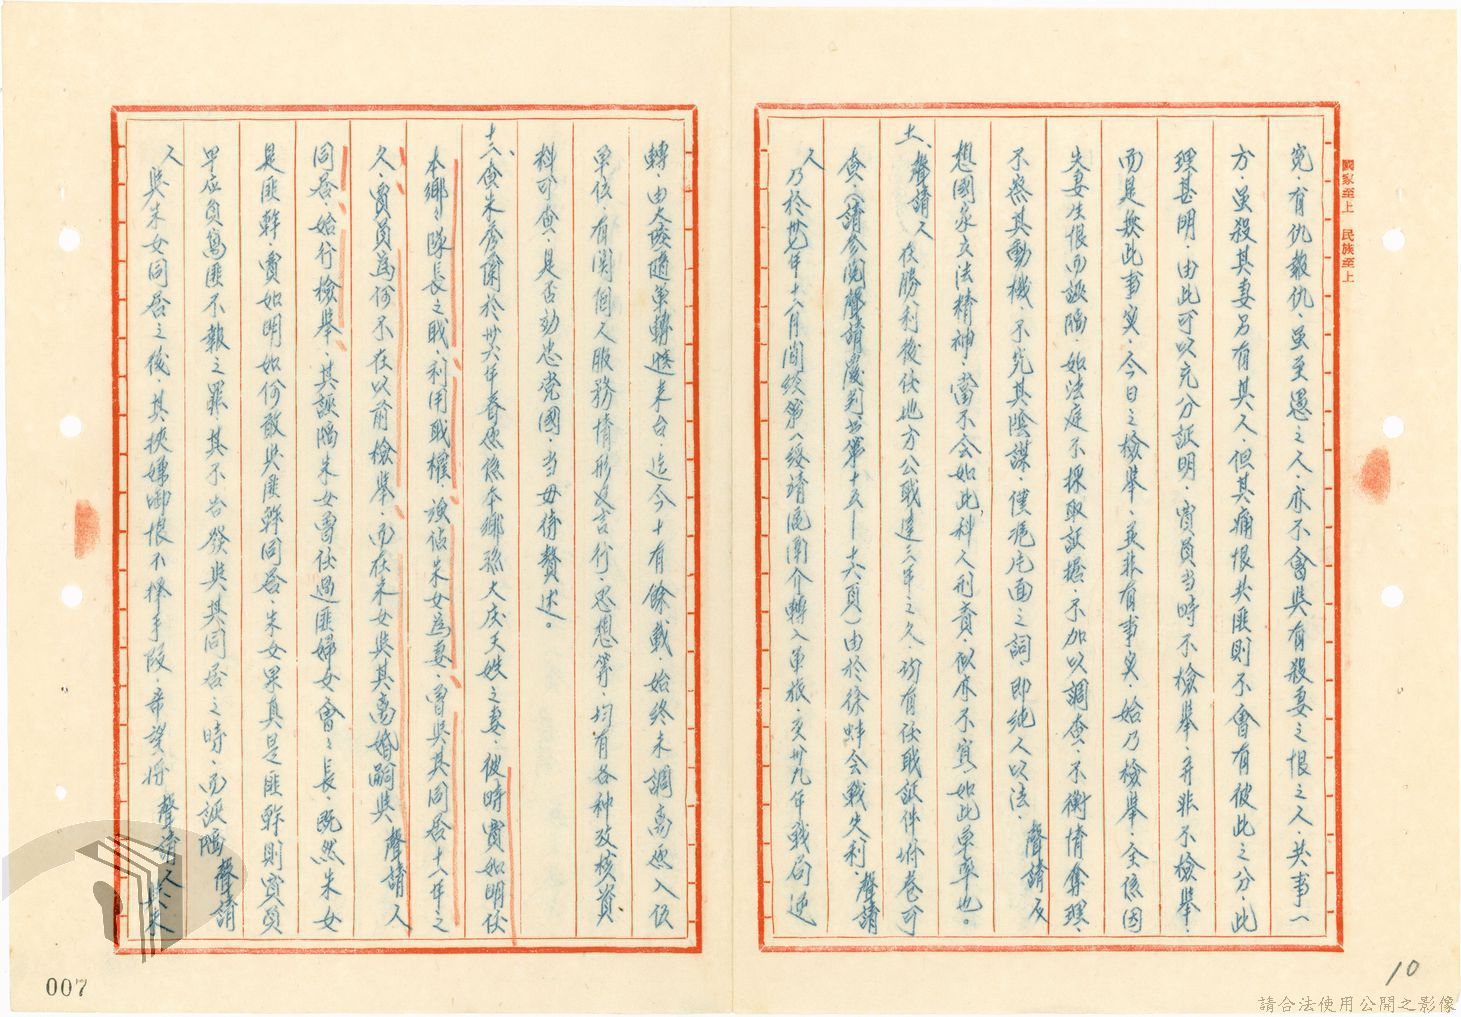 國家至上 民族至上
究有仇報仇，虽至愚之人，亦不會與有殺妻之恨之人，共事一
方，虽殺其妻另有其人，但其痛恨共匪則不會有彼此之分，此
理甚明，由此可以充分証明，賓員当時不檢舉，并非不檢舉，
而是無此事实，今日之檢舉，並非有事实，始乃檢舉，全係因
失妻生恨而誣陷，如法庭不採取証據，不加以調查，不衡情奪理，
不察其動機，不究其陰謀，僅憑片面之詞，即绳人以法，聲請反
想國家立法精神，當不会如此，科人刑責，似亦不宜如此单率也。
十一、聲請人在勝利後任地方公職達三年之久，均有任職証件附卷可
查，（請參閱聲請覆判書第十五—十六頁）由於徐蚌会戰失利，聲請
人乃於卅七年十八月間經第八绥靖區團介轉入軍旅，交卅九年戰局逆
轉，由大陸隨軍轉進来台，迄今十有餘載，始終未調离原入伍
单位，有関個人服務情形及言行，思想等，均有各种攷核資
料可查，是否効忠党國，当毋待贅述。
十二、查朱秀蘭於卅六年春原係本鄉孫大庆天姓之妻，彼時賓如明伏
本鄉鄉隊長之職，利用職權，強佔朱女為妻，曾與其同居十八年之
久，賓員為何不在以前檢舉，而在朱女與其离婚嗣與聲請人
同居，始行檢舉，其誣陷朱女曾任過匪婦女會會長，既然朱女
是匪幹，賓如明如何敢與匪幹同居，朱女果真是匪幹則賓員
早应負為匪不報之罪，其不告發與其同居之時，而誣陷聲請
人與朱女同居之後，其挾嫌啣恨不擇手段，希望将聲請人與朱
007
10
請合法使用公開之影像